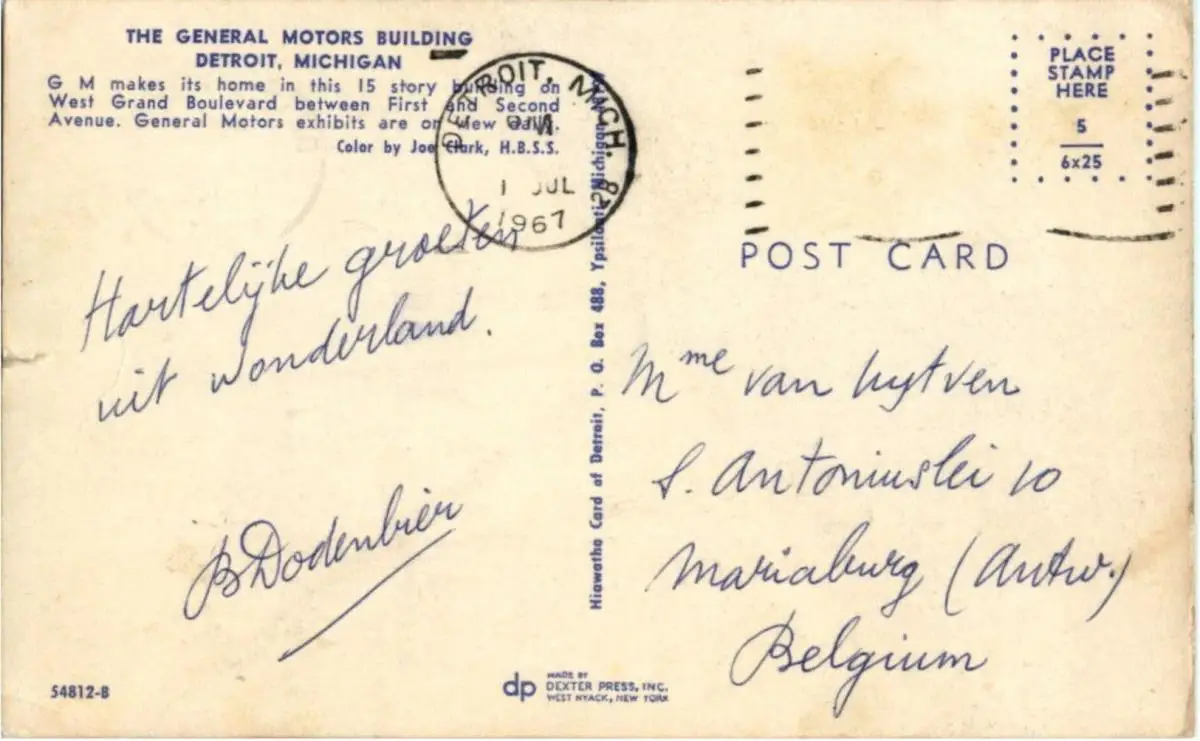 THE GENERAL MOTORS BUILDING
DETROIT, MICHIGAN
G M makes its home in this 15 story building on
West Grand Boulevard between First and Second
Avenue. General Motors exhibits are on view daily.
Color by Joe Clark, H.B.S.S.
DETROIT, MICH. 28
1 JUL
1967
PLACE
STAMP
HERE
5
6x25
POST CARD
Hartelijke groeten
uit wonderland.
B Dodenbier
Hiawatha Card of Detroit, P. O. Box 488, Ypsilanti, Michigan
Mme van Uytven
S. Antoniuslei 10
Mariaburg (Antw.)
Belgium
54812-B
dp
MADE BY
DEXTER PRESS, INC.
WEST NYACK, NEW YORK